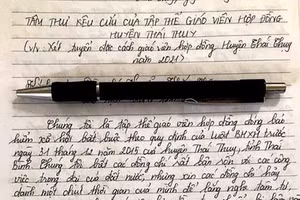 TÂM THƯ KÊU CỨU CỦA TẬP THỂ GIÁO VIÊN HỢP ĐỒNG
HUYỆN THÁI THỤY
(V/v: Xét tuyển đặc cách giáo viên hợp đồng Huyện Thái Thụy
năm 2021)
Chúng tôi là tập thể giáo viên hợp đồng đóng bảo
hiểm xã hội bắt buộc theo quy định của Luật BHXH trước
ngày 31 tháng 12 năm 2015 của huyện Thái Thụy, tỉnh Thái
Bình. Chúng tôi biết các đồng chí rất bận rộn với các công
việc trọng đại của đất nước, nhưng xin các đồng chí hãy
dành một chút thời gian của mình để lắng nghe tâm tư,